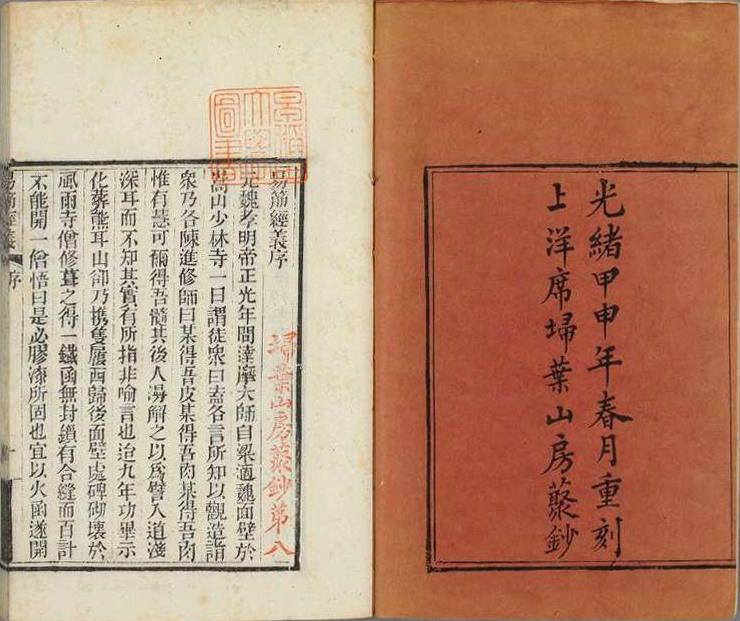 光緒甲申年春月重刻
上洋席埽葉山房藂鈔
易筋經義序
埽葉山房藂鈔第八
元魏孝明帝正光年間達摩大師自梁適魏面壁於
嵩山少林寺一日謂徒衆曰盍各言所知以觀造詣
衆乃各陳進修師曰某得吾皮某得吾肉某得吾肉
惟有慧可爾得吾髓其後人漫解之以爲譬入道淺
深耳而不知其實有所指非喻言也迨九年功畢示
化葬熊耳山卻乃携隻履西歸後面壁處碑砌壞於
風雨寺僧修葺之得一鐵函無封鎖有合縫而百計
不能開一僧悟曰是必膠漆所固也宜以火函遂開
易筋經義
序
一
圖書